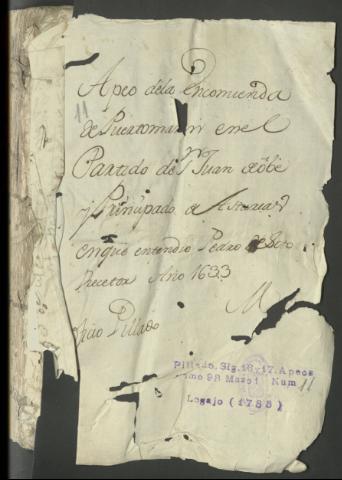 Apeo dela Encomienda
11
de Puertomarin en el
Partido de Sn Juan de
y Principado de Asturias
en que entendio Pedro de
Recetor Año 1633
M
Oficio Pillado
Pillado. Sig. 16 y 17. Apeos
Ramo 98 Mazo 1 Num 11
Legajo (1788)